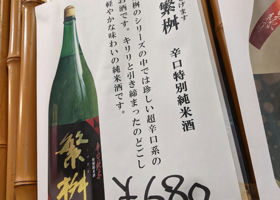 げます
繁桝
辛口特別純米酒
桝のシリーズの中では珍しい超辛口系の
お酒です。キリリと引き締まったのどごし
軽やかな味わいの純米酒です。
繁桝